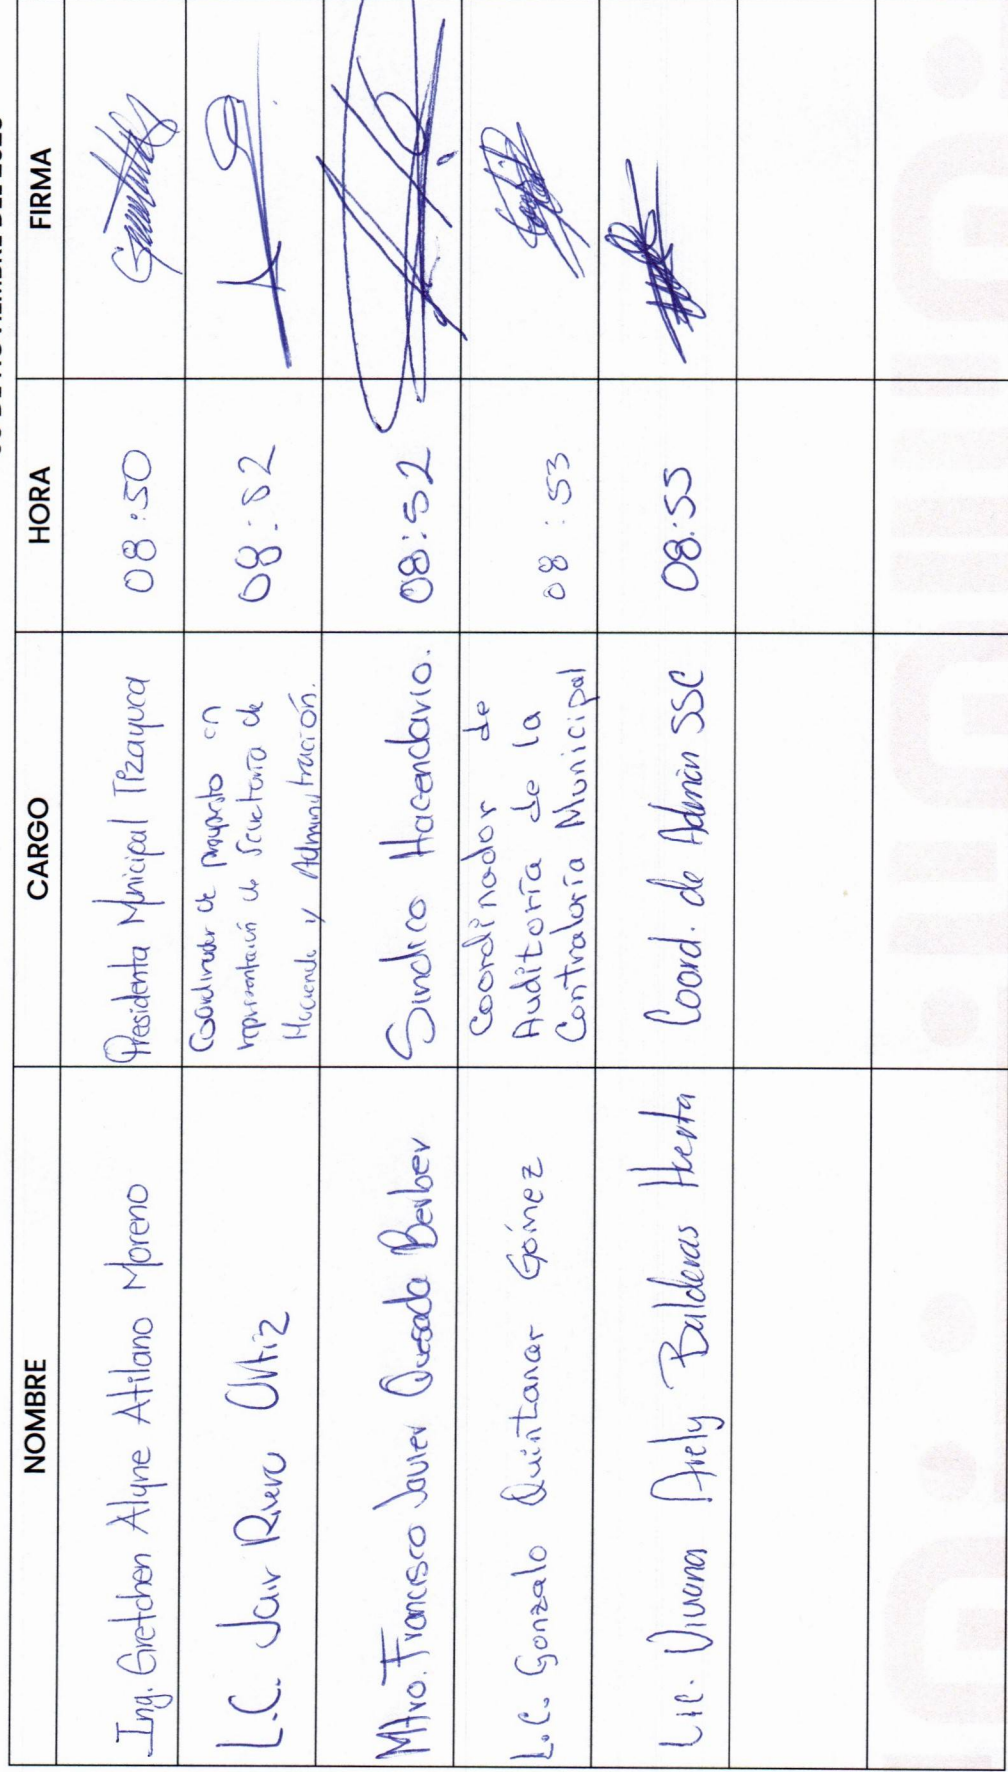 NOMBRE CARGO HORA FIRMA
Ing. Gretchen Alyne Atilano Moreno Presidenta Municipal Tizayuca 08:50
L.C. Jair Rivera Ortiz Coordinador de presupuesto en
representación de Secretaría de
Hacienda y Administración. 08:52
Mtro. Francisco Javier Quesada Berber Sindico Hacendario. 08:52
L.C. Gonzalo Quintanar Gómez Coordinador de
Auditoría de la
Contraloría Municipal 08:53
Lic. Viviana Arely Balderas Huerta Coord. de Admin SSC 08:55